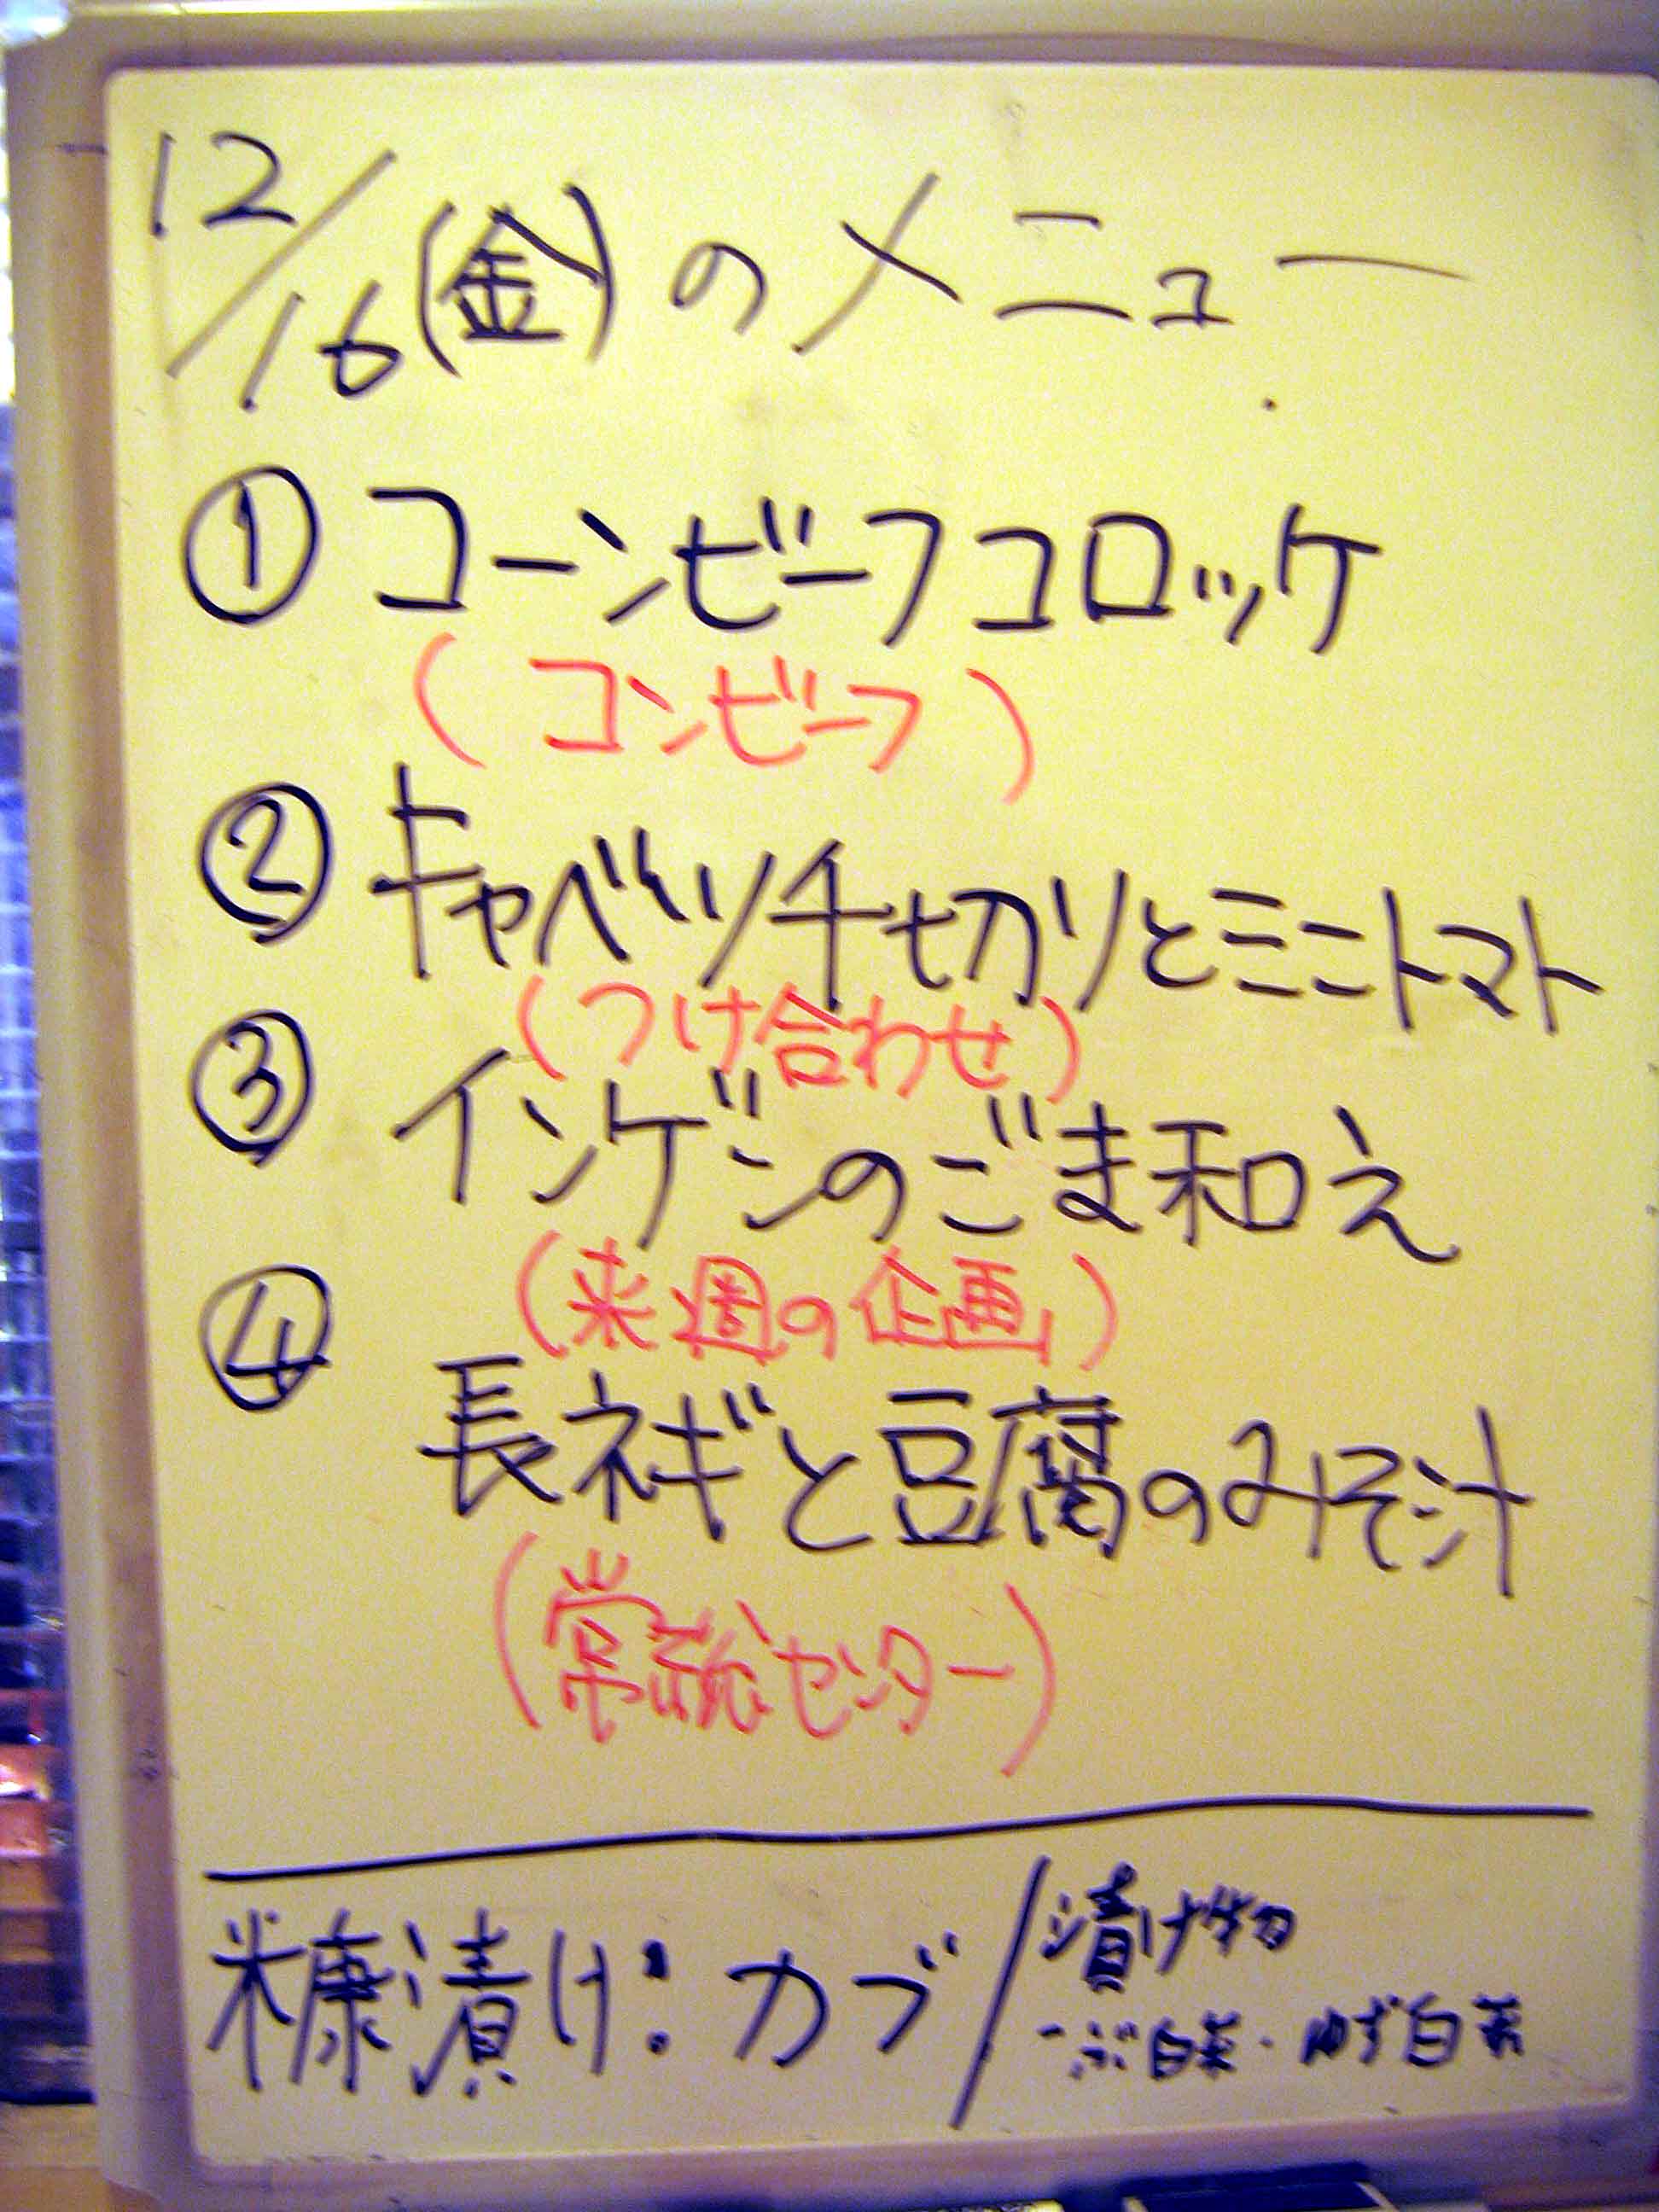 12/16(金)のメニュー
① コーンビーフコロッケ
(コンビーフ)
② キャベツ千切りとミニトマト
(つけ合わせ)
③ インゲンのごま和え
(来週の企画)
④ 長ネギと豆腐のみそ汁
(常総センター)
糠漬け:カブ/漬け物
白菜・ゆず白菜